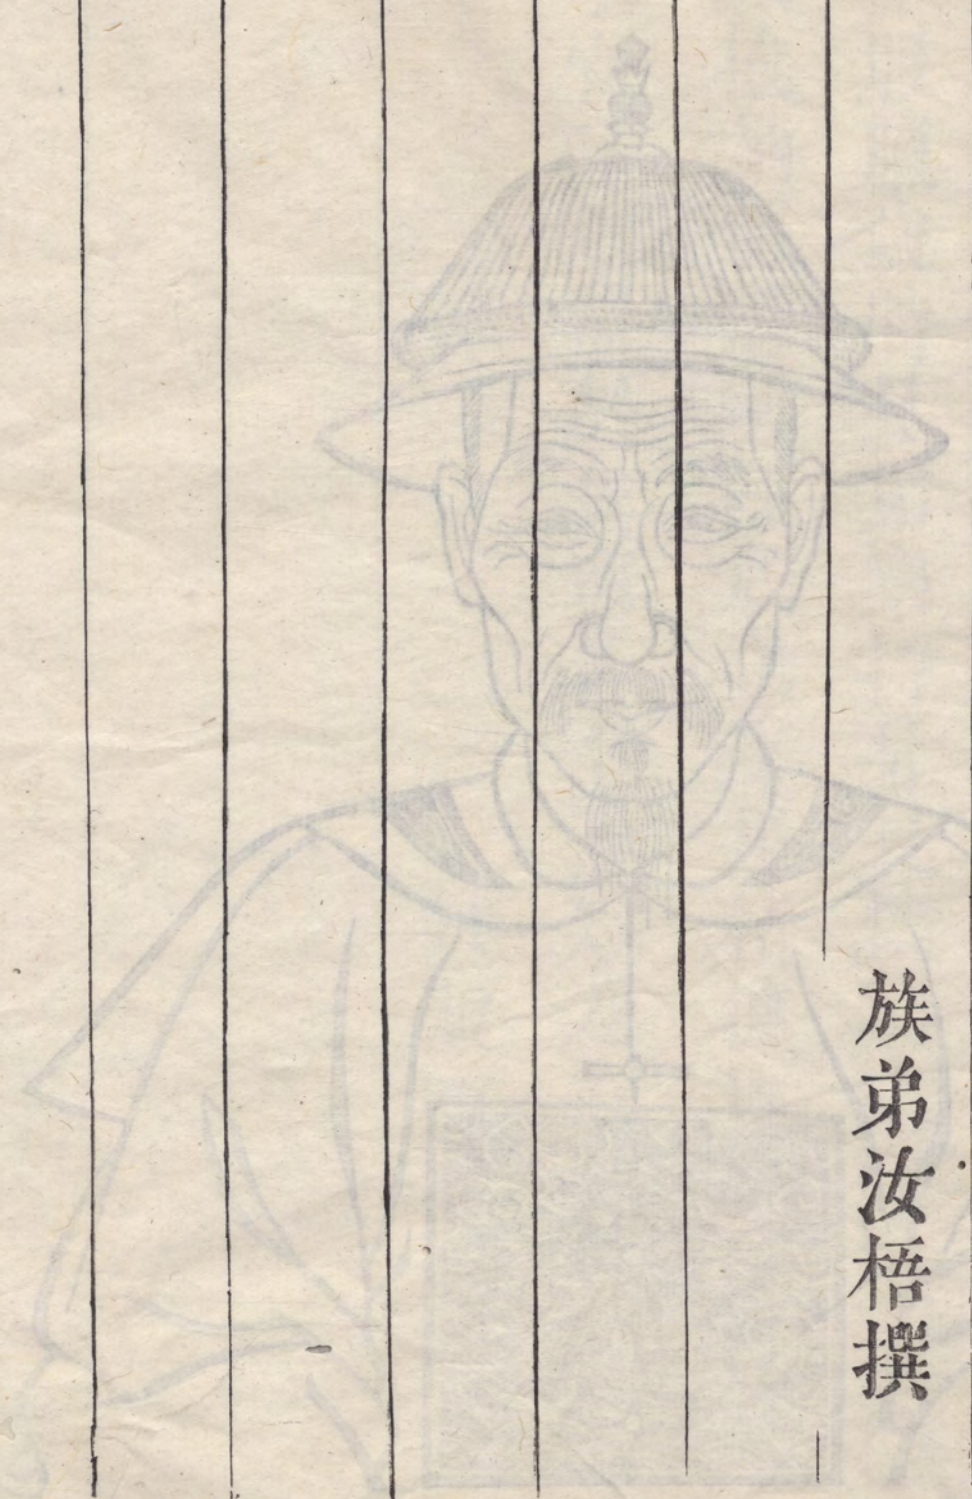 族弟汝梧撰